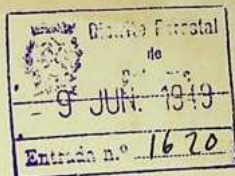 Distrito Forestal
de
- 9 JUN. 1949
Entrada n.º 1620